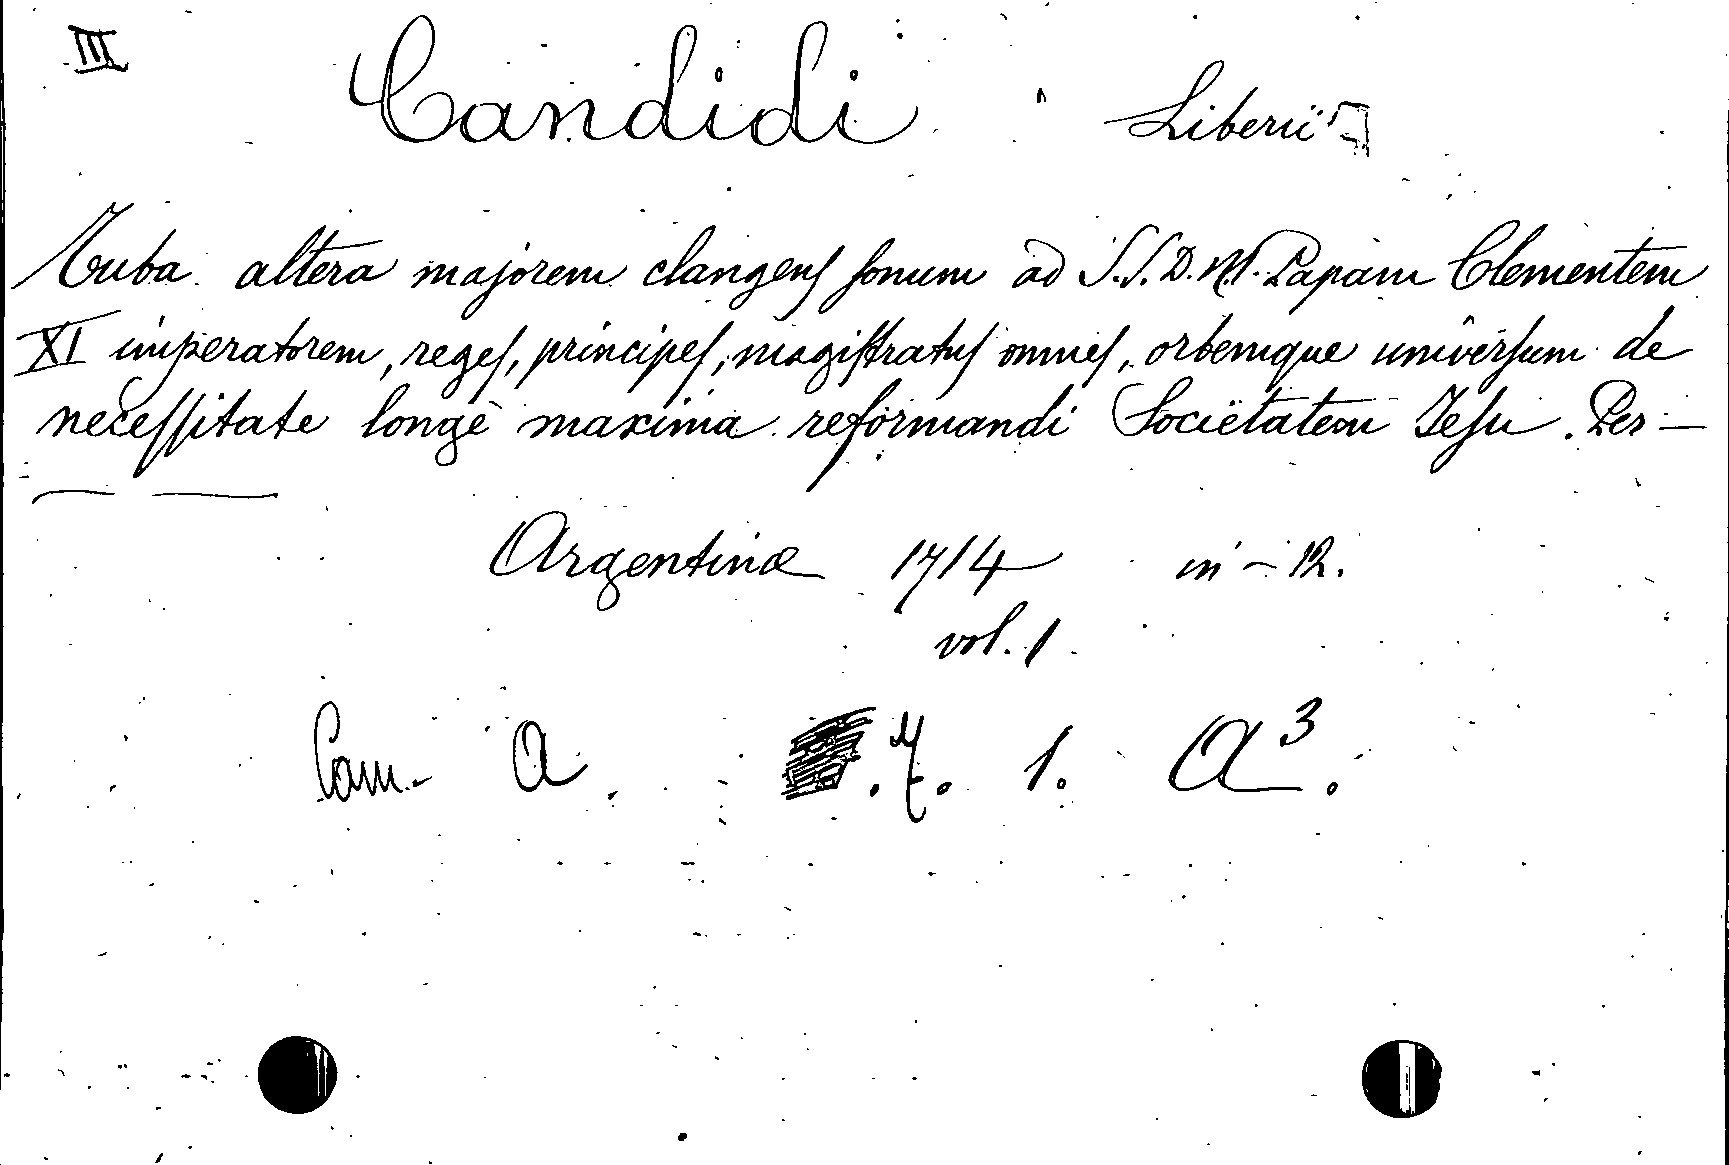 III Candidi Liberii
Tuba altera majorem clangens sonum ad S.S.D.N. Papam Clementem
XI imperatorem, reges, principes, magistratus omnes, orbemque universum de
necessitate longè maxima reformandi Societatem Jesu. Per —
Argentinæ 1714 in-12.
vol. 1
Cam. A. 7. 1. A³.